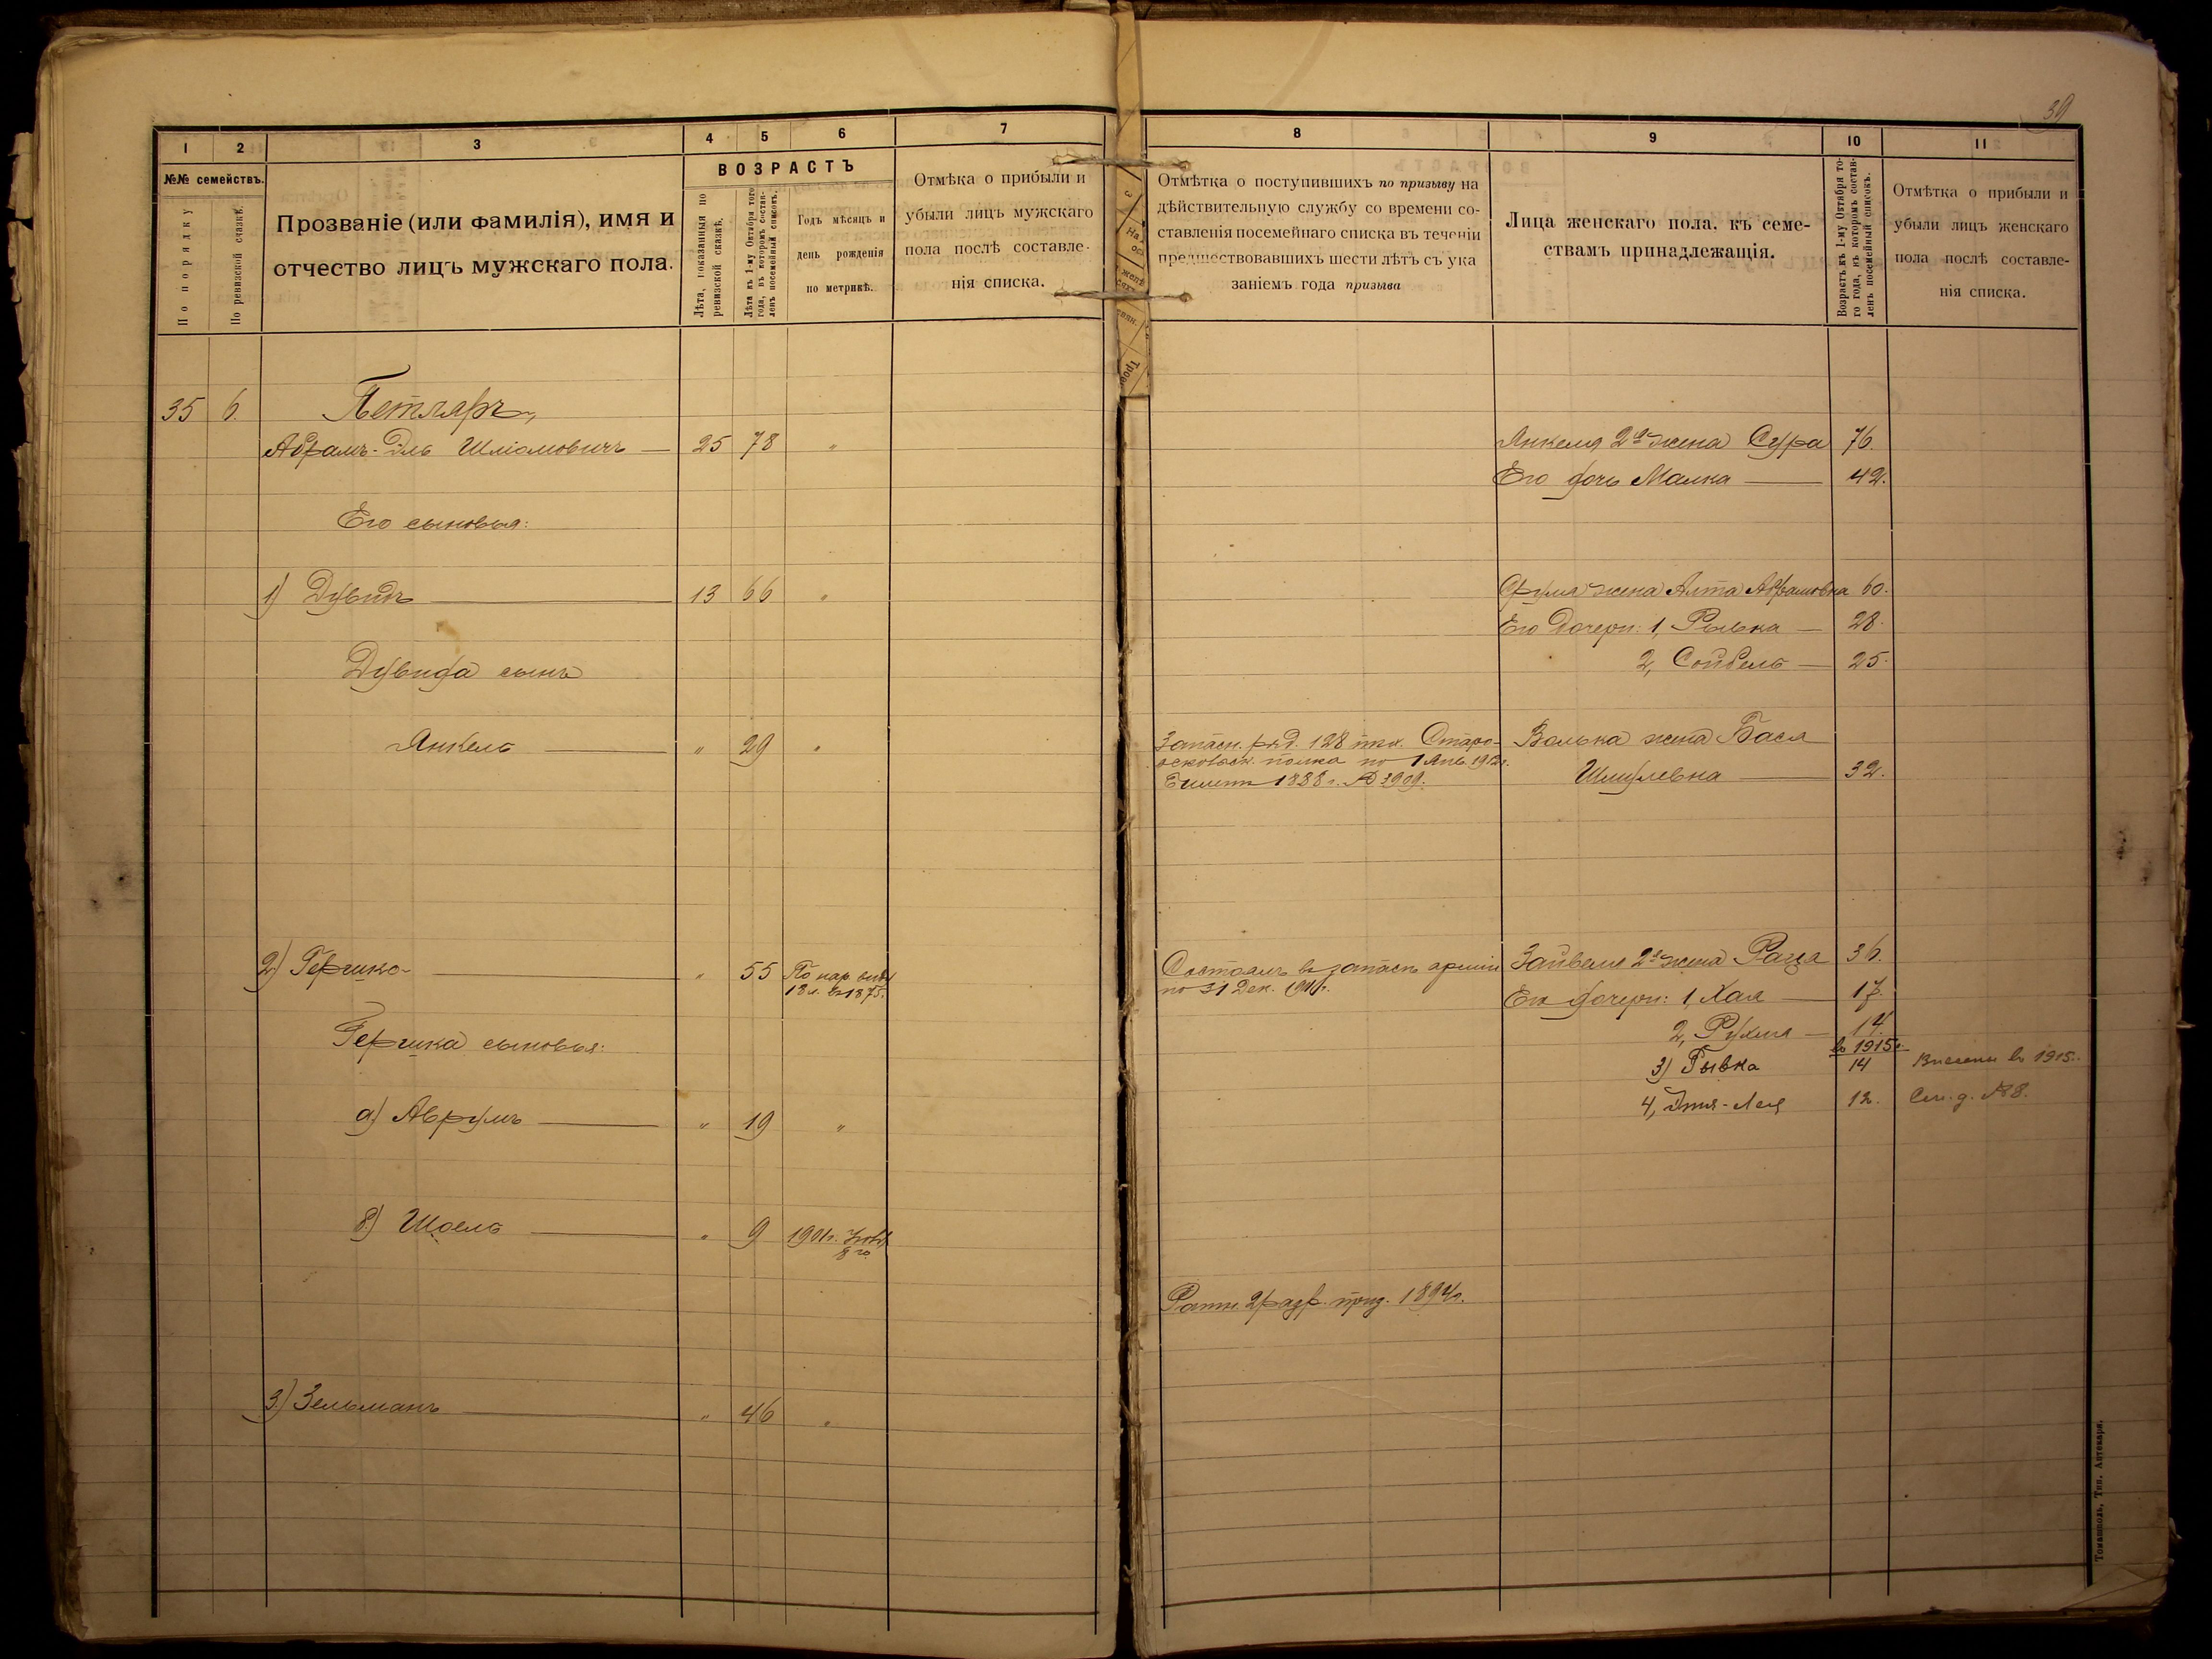 39
1 2 3 4 5 6 7
№№ семействъ.
По порядку
По ревизской сказкѣ.
Прозваніе (или фамилія), имя и
отчество лицъ мужскаго пола.
ВОЗРАСТЪ
Лѣта, показанныя по
ревизской сказкѣ.
Лѣта къ 1-му Октября того
года, въ которомъ состав-
ленъ посемейный списокъ.
Годъ мѣсяцъ и
день рожденія
по метрикѣ.
Отмѣка о прибыли и
убыли лицъ мужскаго
пола послѣ составле-
нія списка.
35 6. Петляръ,
Абрамъ-Эль Шліомовичъ — 25 78 "
Его сыновья:
1) Дувидъ — 13 66 "
Дувида сынъ
Янкель — " 29 "
2) Гершко — " 55 По нар. виду
18 л. въ 1875.
Гершка сыновья:
а) Аврумъ — " 19 "
б) Шоель — " 9 1901г.
3) Зельманъ — " 46 "
8 9 10 11
Отмѣтка о поступившихъ по призыву на
дѣйствительную службу со времени со-
ставленія посемейнаго списка въ теченіи
предшествовавшихъ шести лѣтъ съ ука
заніемъ года призыва
Лица женскаго пола, къ семе-
ствамъ принадлежащія.
Возрастъ къ 1-му Октября то-
го года, въ которомъ состав-
ленъ посемейный списокъ.
Отмѣтка о прибыли и
убыли лицъ женскаго
пола послѣ составле-
нія списка.
Янкеля 2я жена Сура 76.
Его дочь Малка — 42.
Срула жена Алта Абрамовна 60.
Его дочери: 1, Рывка — 28.
2, Сойбель — 25.
Запасн. ряд. 128 пѣх. Старо-
оскольск. полка по 1 Янв. 1912г.
билетъ 1888г. № 3909.
Волька жена Бася
Шмулевна — 32.
Состоялъ въ запасѣ арміи
по 31 Дек. 1911г.
Зайвеля 2я жена Раця 36.
Его дочери: 1, Хая — 17.
2, Рухля — 14.
въ 1915г.
3) Рывка 14 Внесены въ 1915г.
4, Лея 12. См. д. №8.
Ратн. 2 разр. приз. 1894г.
Томашполь, Тип. Аптекаря.